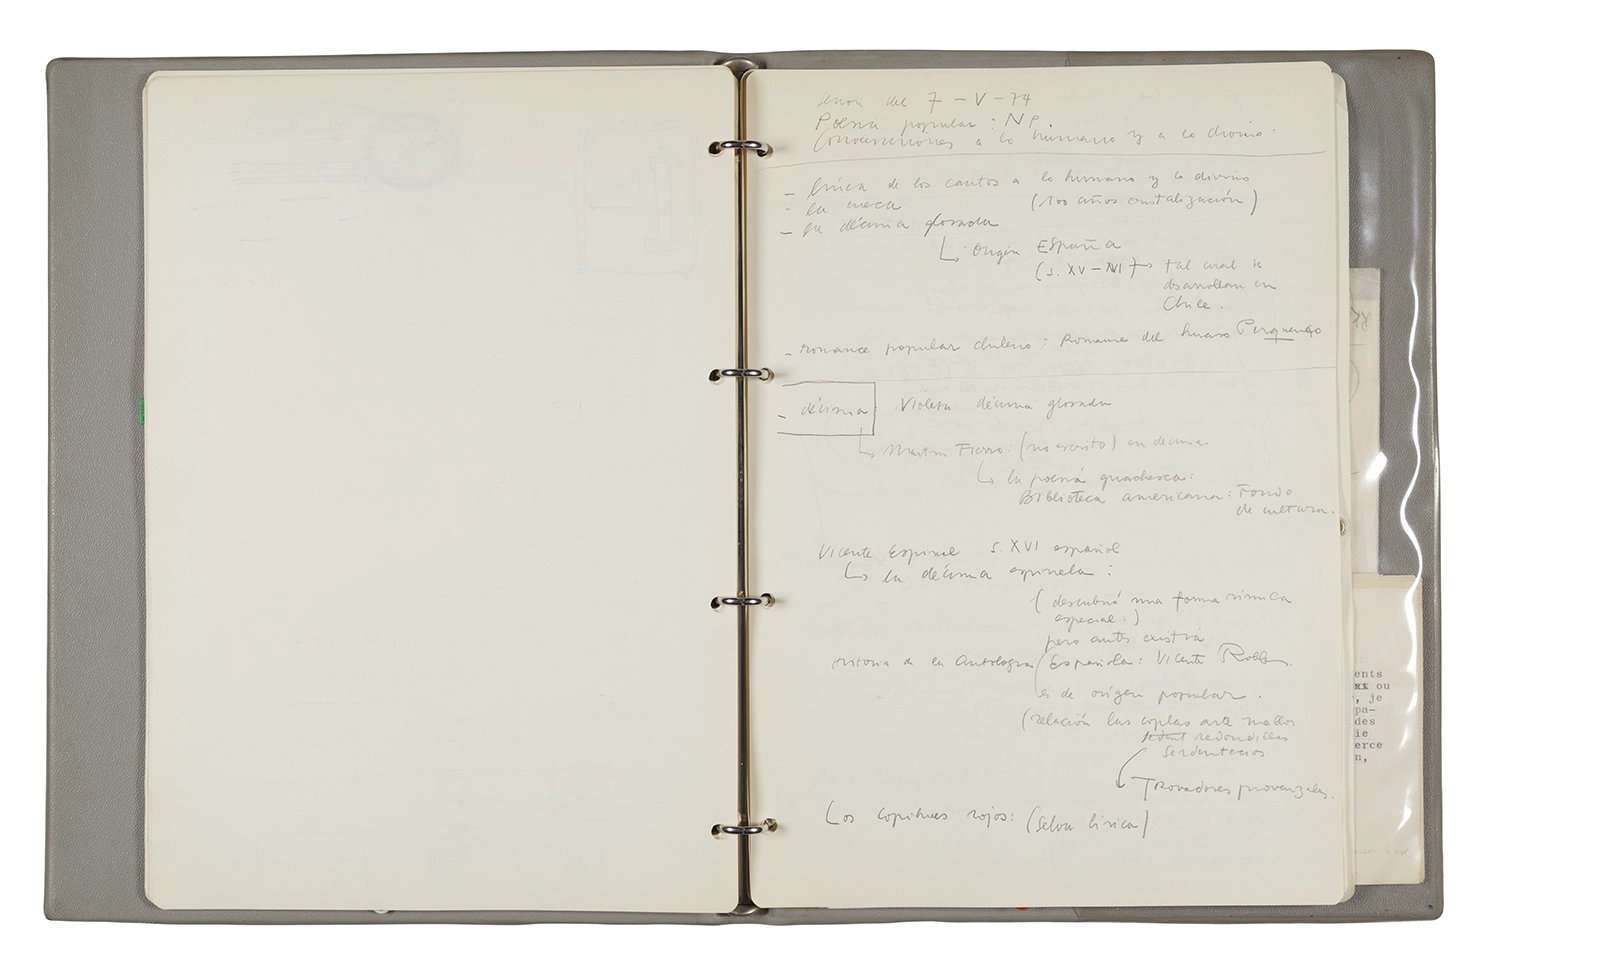 del 7 – V – 74
Poesía popular: NP.
a lo humano y a lo divino.
– línea de los cantos a lo humano y lo divino
– la cueca (100 años cristalización)
– la décima glosada
Origen España
(s. XV – XVI) → tal cual se
desarrollan en
Chile.
– romance popular chileno: Romance del huaso Perquenco
– décima: Violeta décima glosada
Martín Fierro: (no escrito) en décimas
la poesía gauchesca:
Biblioteca americana: Fondo
de cultura.
Vicente Espinel s. XVI español
la décima espinela:
(descubrió una forma rímica
especial.)
pero antes existía
de la Antología Española: Vicente
es de origen popular.
(relación las coplas arte
redondillas
Trovadores provenzales.
Los copihues rojos: (Selva lírica)
ents
xx ou
, je
pa-
des
ie
erce
n,